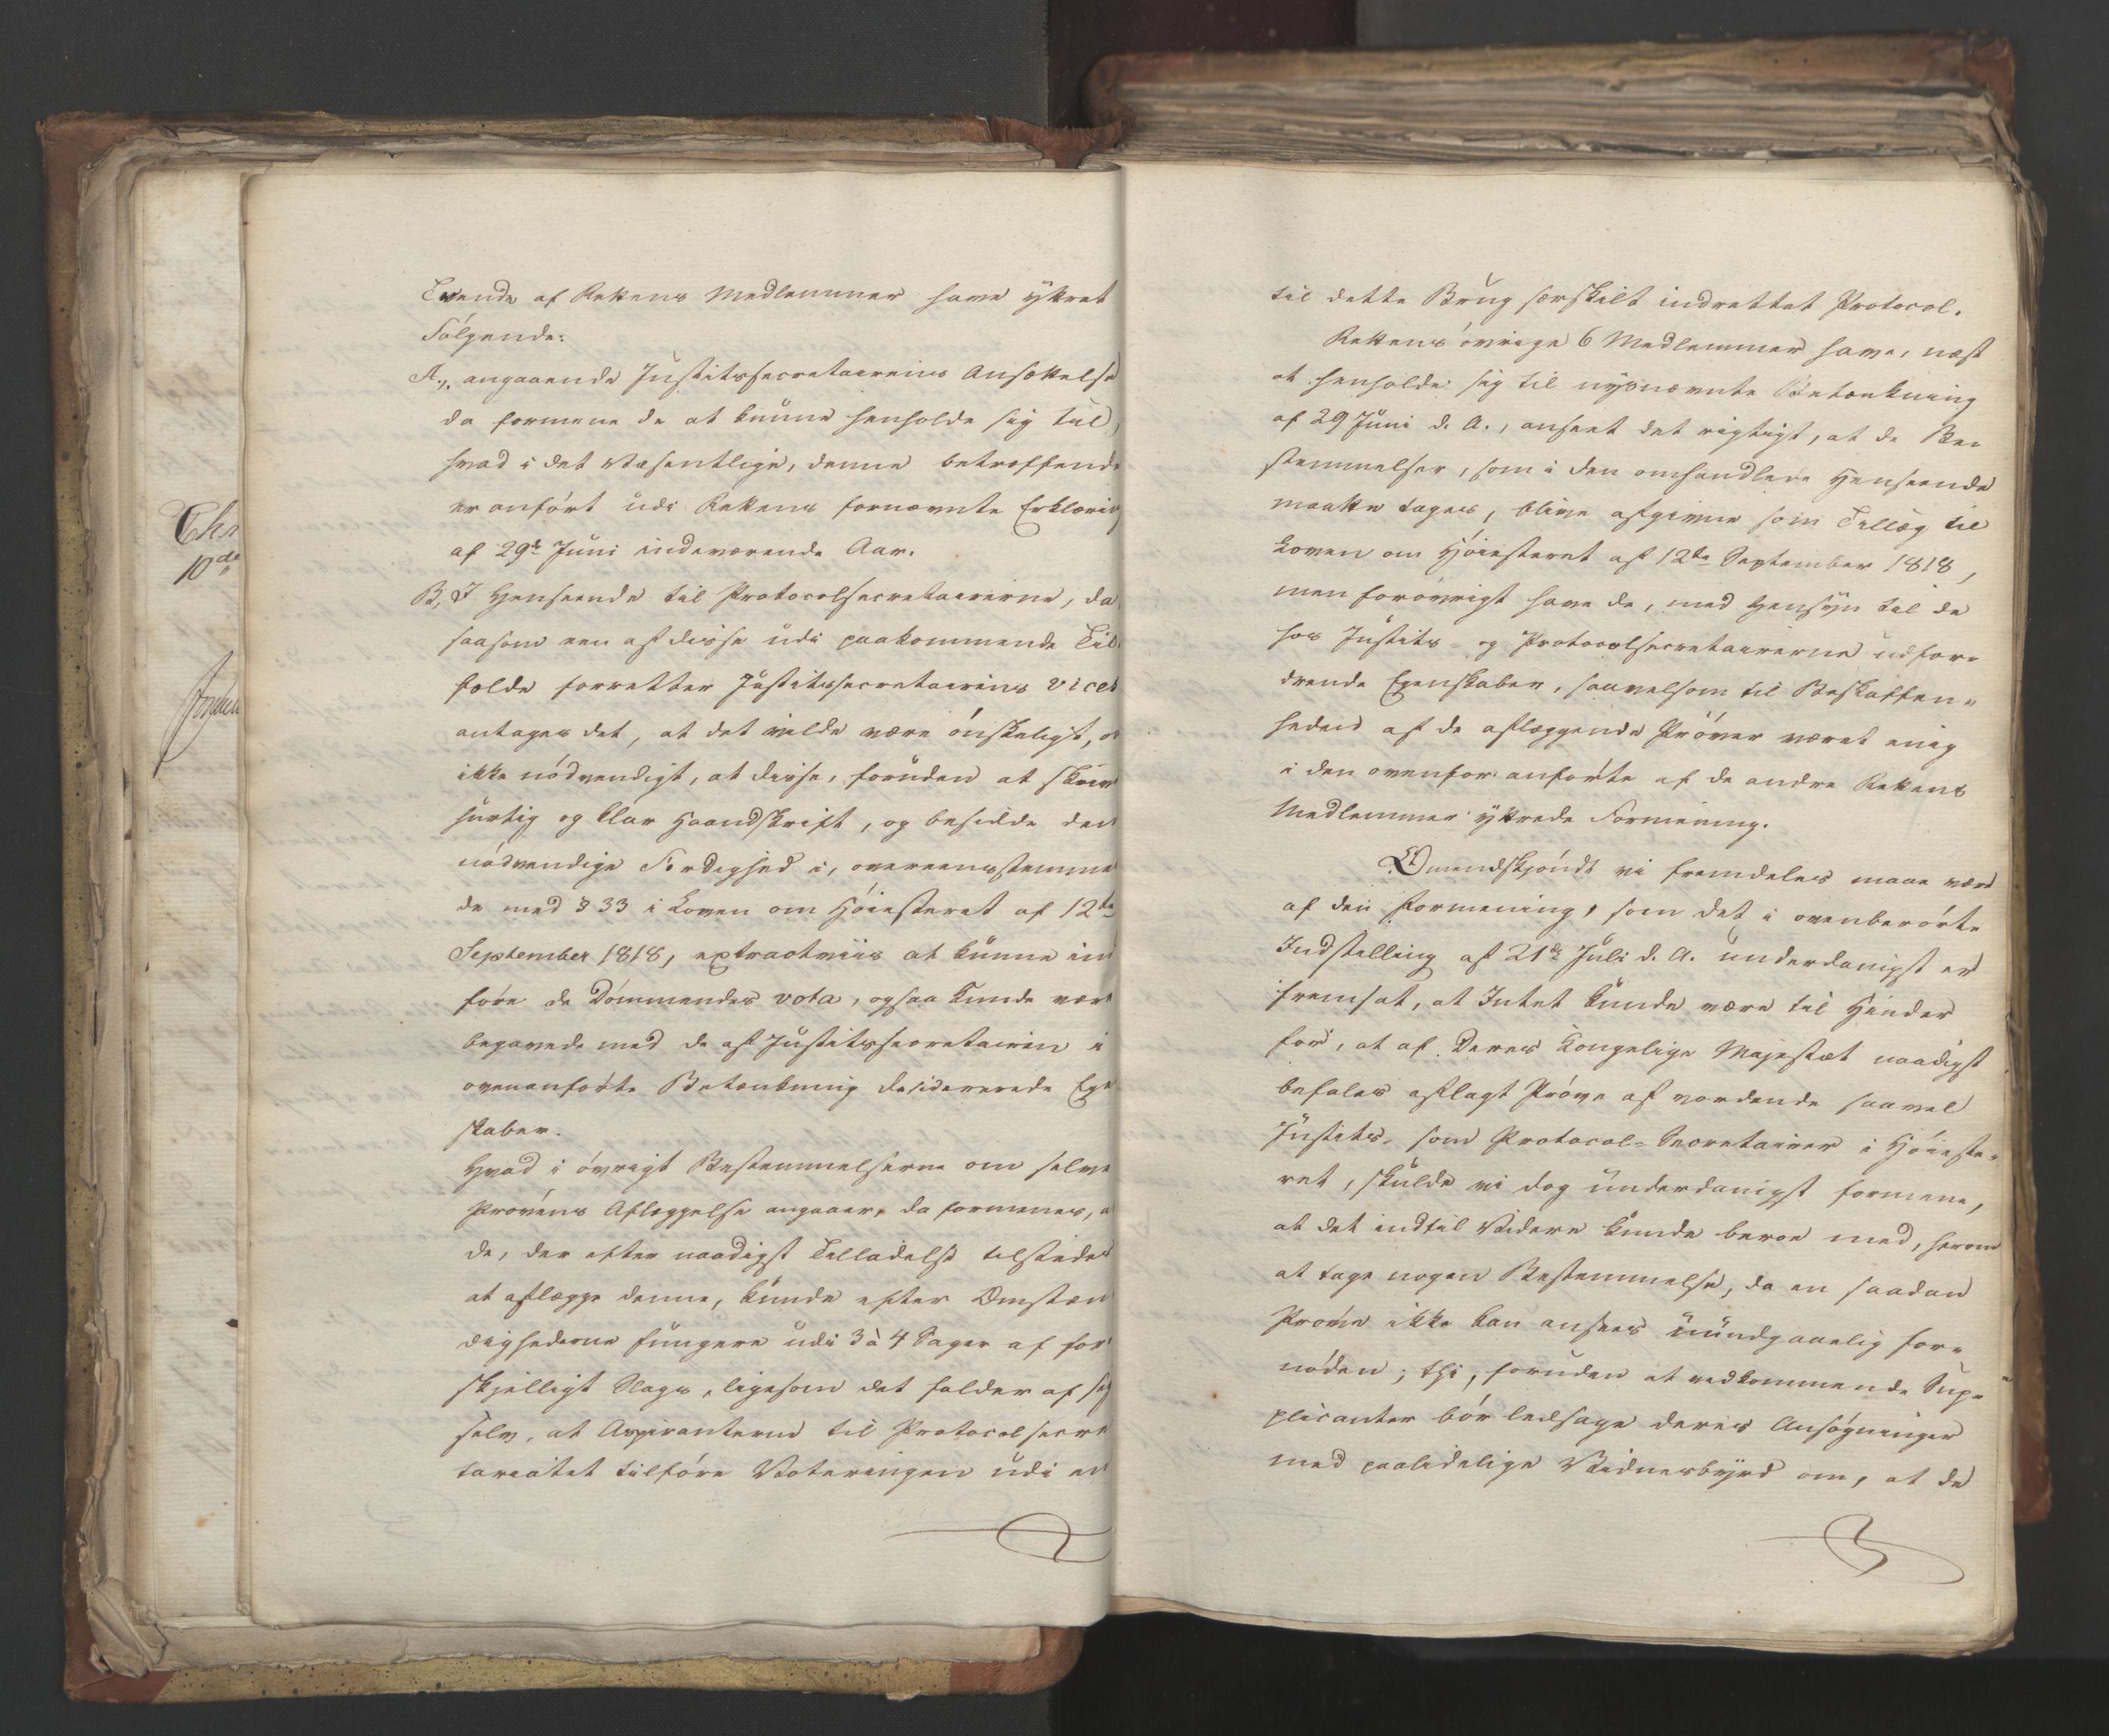 Tvende af Rettens Medlemmer have yttret
Følgende:
A., angaaende Justitssecretairens Ansættelse
da formene de at kunne henholde sig til,
hvad i det Væsentlige, denne betræffende
er anført udi Rettens fornævnte Erklæring
af 29de Juni indeværende Aar.
B, I Henseende til Protocolsecretairerne, da
saasom een af disse udi paakommende Til-
fælde forretter Justitssecretairens vices
antages det, at det vilde være ønskeligt, om
ikke nødvendigt, at disse, foruden at skrive
hurtig og klar Haandskrift, og besidde den
nødvendige Færdighed i, overeensstemmen
de med § 33 i Loven om Høiesteret af 12te
September 1818, extractviis at kunne ind
føre de Dømmendes vota, ogsaa kunde være
begavede med de af Justitssecretairen i
ovenanførte Betænkning desidererede Egen
skaber.
Hvad i øvrigt Bestemmelserne om selve
Prøvens Aflæggelse angaaer, da formenes, at
de, der efter naadigst Tilladelse tilstedes
at aflægge denne, kunde efter Omstæn
dighederne fungere udi 3 à 4 Sager af for
skjelligt Slags, ligesom det falder af sig
selv, at Aspiranterne til Protocolsecre
tariatet tilføre Voteringen udi en
Chr
10de
til dette Brug særskilt indrettet Protocol.
Rettens øvrige 6 Medlemmer have, næst
at henholde sig til nysnævnte Betænkning
af 29 Juni d. A., anseet det rigtigt, at de Be-
stemmelser, som i den omhandlede Henseende
maatte tages, blive afgivne som Tillæg til
Loven om Høiesteret af 12te September 1818,
men forøvrigt have de, med Hensyn til de
hos Justits- og Protocolsecretairerne udfor-
drende Egenskaber, saavelsom til Beskaffen-
heden af de aflæggende Prøver været enig
i den ovenfor anførte af de andre Rettens
Medlemmer yttrede Formening.
Omendskjøndt vi fremdeles maae være
af den Formening, som det i ovenberørte
Indstilling af 21de Juli d. A. underdanigst er
fremsat, at Intet kunde være til Hinder
for, at af Deres Kongelige Majestæt naadigst
befales aflagt Prøve af vordende saavel
Justits- som Protocol-Secretairer i Høieste-
ret, skulde vi dog underdanigst formene,
at det indtil Videre kunde beroe med, herom
at tage nogen Bestemmelse, da en saadan
Prøve ikke kan ansees uundgaaelig for-
nøden; thi, foruden at vedkommende Sup-
plicanter bør ledsage deres Ansøgninger
med paalidelige Vidnesbyrd om, at de